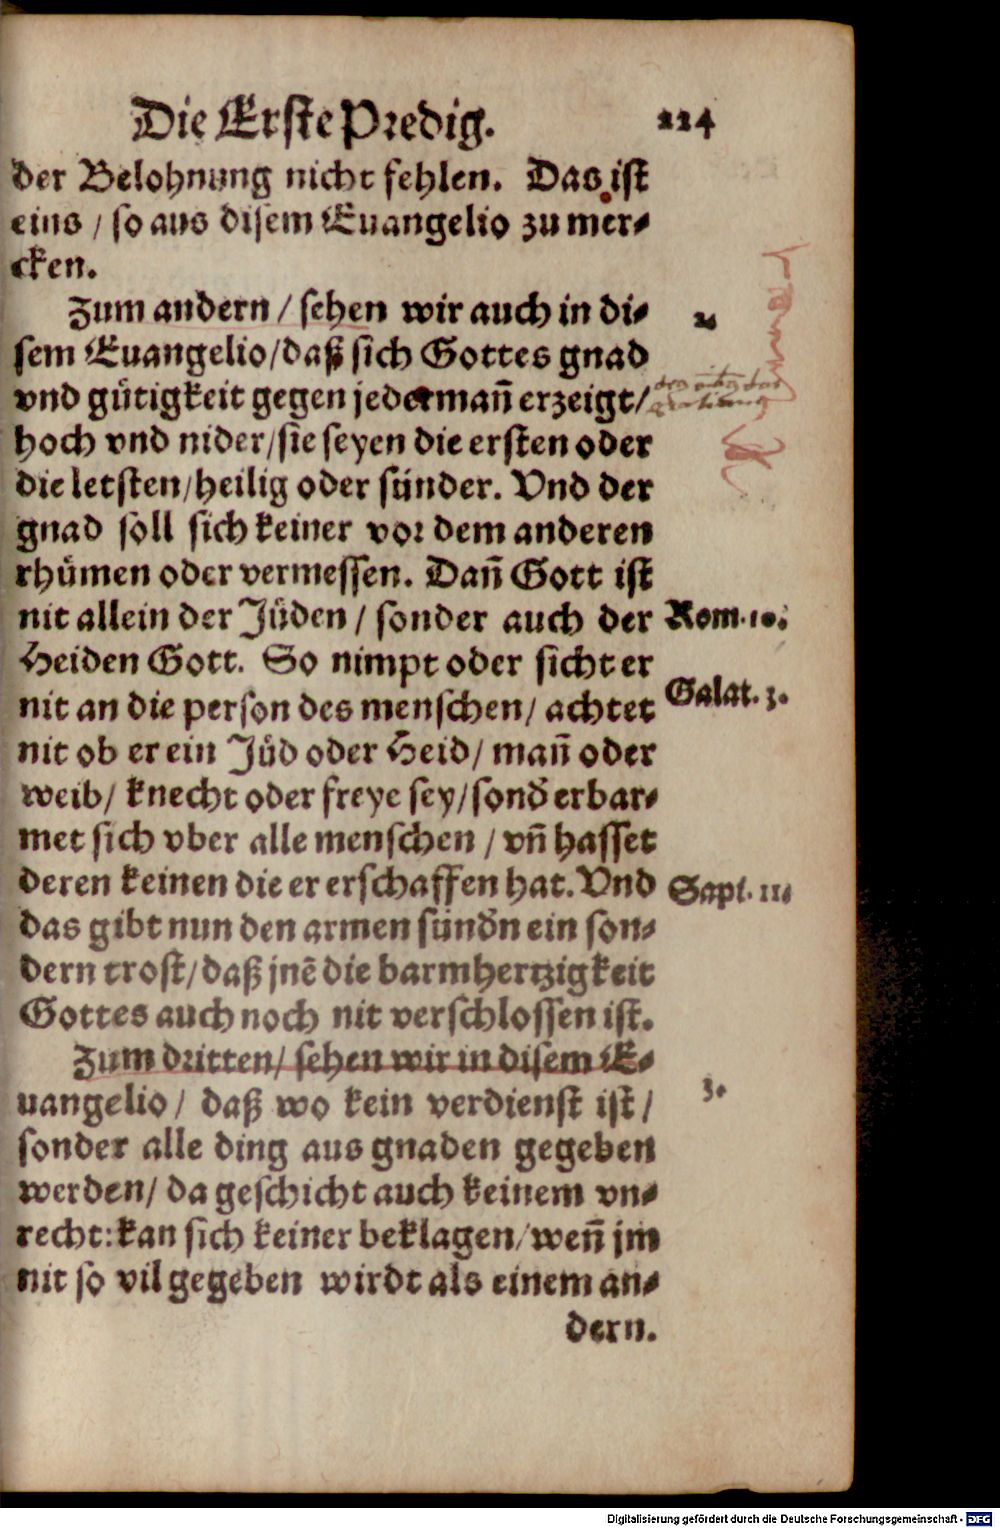 Die Erste Predig. 224
der Belohnung nicht fehlen. Das ist
eins / so aus disem Euangelio zu mer-
cken.
Zum andern / sehen wir auch in di-
2.
sem Euangelio / daß sich Gottes gnad
vnd gütigkeit gegen jederman̄ erzeigt /
hoch vnd nider / sie seyen die ersten oder
die letsten / heilig oder sünder. Vnd der
gnad soll sich keiner vor dem anderen
rhümen oder vermessen. Dan̄ Gott ist
nit allein der Jüden / sonder auch der
Rom. 10.
Heiden Gott. So nimpt oder sicht er
nit an die person des menschen / achtet
Galat. 3.
nit ob er ein Jüd oder Heid / man̄ oder
weib / knecht oder freye sey / sond̛ erbar-
met sich vber alle menschen / vn̄ hasset
deren keinen die er erschaffen hat. Vnd
Sapi. 11.
das gibt nun den armen sünd̛n ein son-
dern trost / daß jnē die barmhertzigkeit
Gottes auch noch nit verschlossen ist.
Zum dritten / sehen wir in disem E-
3.
uangelio / daß wo kein verdienst ist /
sonder alle ding aus gnaden gegeben
werden / da geschicht auch keinem vn-
recht: kan sich keiner beklagen / wen̄ jm
nit so vil gegeben wirdt als einem an-
dern.
Digitalisierung gefördert durch die Deutsche Forschungsgemeinschaft - DFG